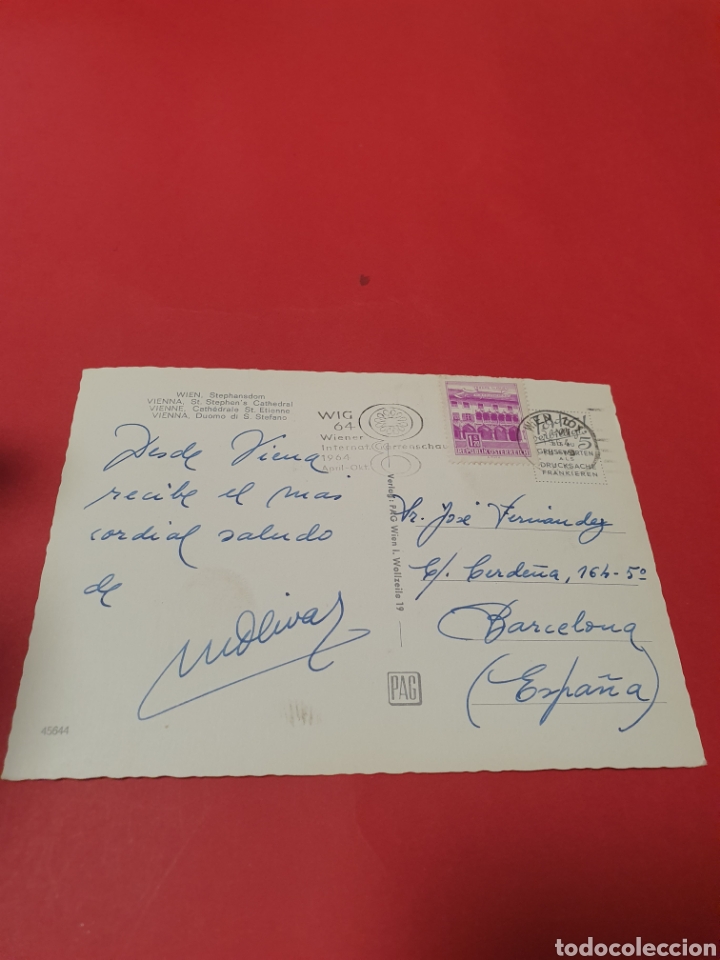 WIEN, Stephansdom
VIENNA, St. Stephen's Cathedral
VIENNE, Cathédrale St. Etienne
VIENNA, Duomo di S. Stefano
WIG
64
Wiener
Internat. Gartenschau
1964
April-Okt.
REPUBLIK ÖSTERREICH
WIEN
GRUSSKARTEN
ALS
DRUCKSACHE
FRANKIEREN
Desde Viena
recibe el mas
cordial saludo
de
Verlag: PAG Wien I, Wollzeile 19
Sr. José Fernández
C/. Cerdeña, 164-5º
Barcelona
(España)
PAG
45644
todocoleccion